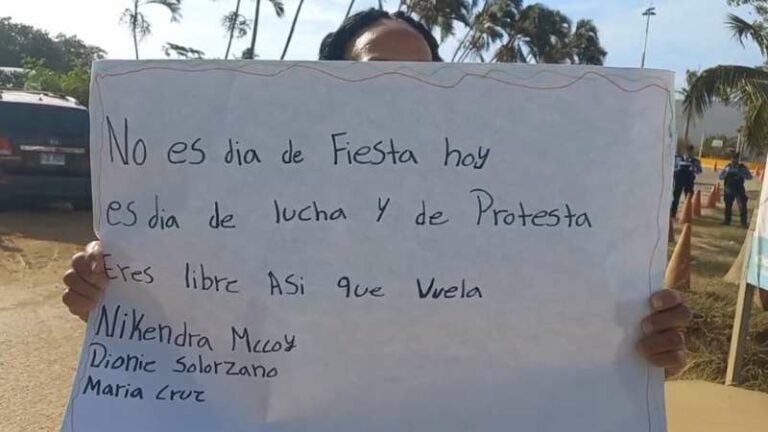 No es dia de Fiesta hoy
es dia de lucha y de Protesta
Eres libre Asi que Vuela
Nikendra Mccoy
Dionie Solorzano
Maria Cruz